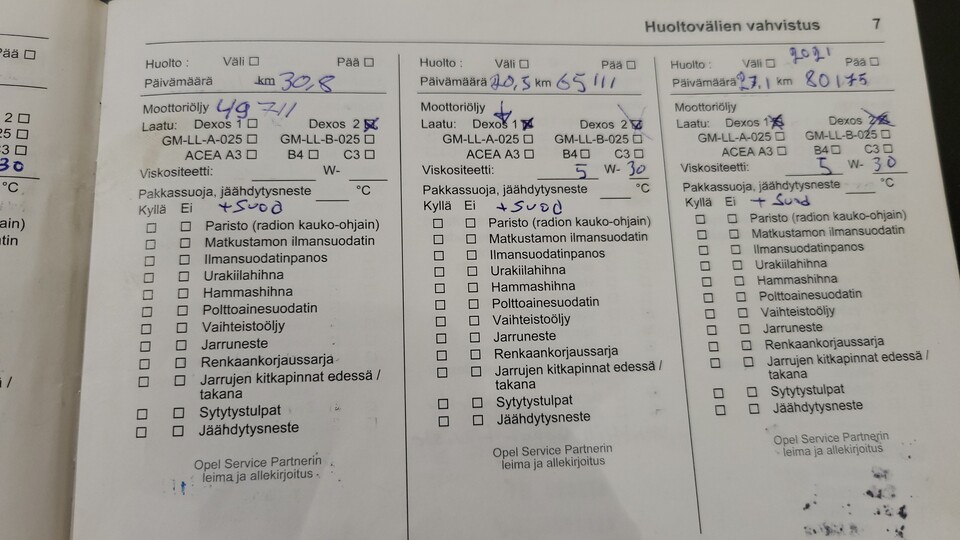 Huoltovälien vahvistus 7
Pää ☐
2 ☐
25 ☐
C3 ☐
30
°C
ain)
tin
/
Huolto : Väli ☐ Pää ☐
Päivämäärä km 30,8
Moottoriöljy 49711
Laatu: Dexos 1 ☐ Dexos 2 ☒
GM-LL-A-025 ☐ GM-LL-B-025 ☐
ACEA A3 ☐ B4 ☐ C3 ☐
Viskositeetti: W-
Pakkassuoja, jäähdytysneste °C
Kyllä Ei + suod
☐ ☐ Paristo (radion kauko-ohjain)
☐ ☐ Matkustamon ilmansuodatin
☐ ☐ Ilmansuodatinpanos
☐ ☐ Urakiilahihna
☐ ☐ Hammashihna
☐ ☐ Polttoainesuodatin
☐ ☐ Vaihteistoöljy
☐ ☐ Jarruneste
☐ ☐ Renkaankorjaussarja
☐ ☐ Jarrujen kitkapinnat edessä /
takana
☐ ☐ Sytytystulpat
☐ ☐ Jäähdytysneste
Opel Service Partnerin
leima ja allekirjoitus
Huolto : Väli ☐ Pää ☐
Päivämäärä 20,5 km 65111
Moottoriöljy
Laatu: Dexos 1 ☒ Dexos 2 ☒
GM-LL-A-025 ☐ GM-LL-B-025 ☐
ACEA A3 ☐ B4 ☐ C3 ☐
Viskositeetti: 5 W- 30
Pakkassuoja, jäähdytysneste °C
Kyllä Ei + suod
☐ ☐ Paristo (radion kauko-ohjain)
☐ ☐ Matkustamon ilmansuodatin
☐ ☐ Ilmansuodatinpanos
☐ ☐ Urakiilahihna
☐ ☐ Hammashihna
☐ ☐ Polttoainesuodatin
☐ ☐ Vaihteistoöljy
☐ ☐ Jarruneste
☐ ☐ Renkaankorjaussarja
☐ ☐ Jarrujen kitkapinnat edessä /
takana
☐ ☐ Sytytystulpat
☐ ☐ Jäähdytysneste
Opel Service Partnerin
leima ja allekirjoitus
2021
Huolto : Väli ☐ Pää ☐
Päivämäärä 27,1 km 80175
Moottoriöljy
Laatu: Dexos 1 ☒ Dexos 2 ☒
GM-LL-A-025 ☐ GM-LL-B-025 ☐
ACEA A3 ☐ B4 ☐ C3 ☐
Viskositeetti: 5 W- 30
Pakkassuoja, jäähdytysneste °C
Kyllä Ei + suod
☐ ☐ Paristo (radion kauko-ohjain)
☐ ☐ Matkustamon ilmansuodatin
☐ ☐ Ilmansuodatinpanos
☐ ☐ Urakiilahihna
☐ ☐ Hammashihna
☐ ☐ Polttoainesuodatin
☐ ☐ Vaihteistoöljy
☐ ☐ Jarruneste
☐ ☐ Renkaankorjaussarja
☐ ☐ Jarrujen kitkapinnat edessä /
takana
☐ ☐ Sytytystulpat
☐ ☐ Jäähdytysneste
Opel Service Partnerin
leima ja allekirjoitus